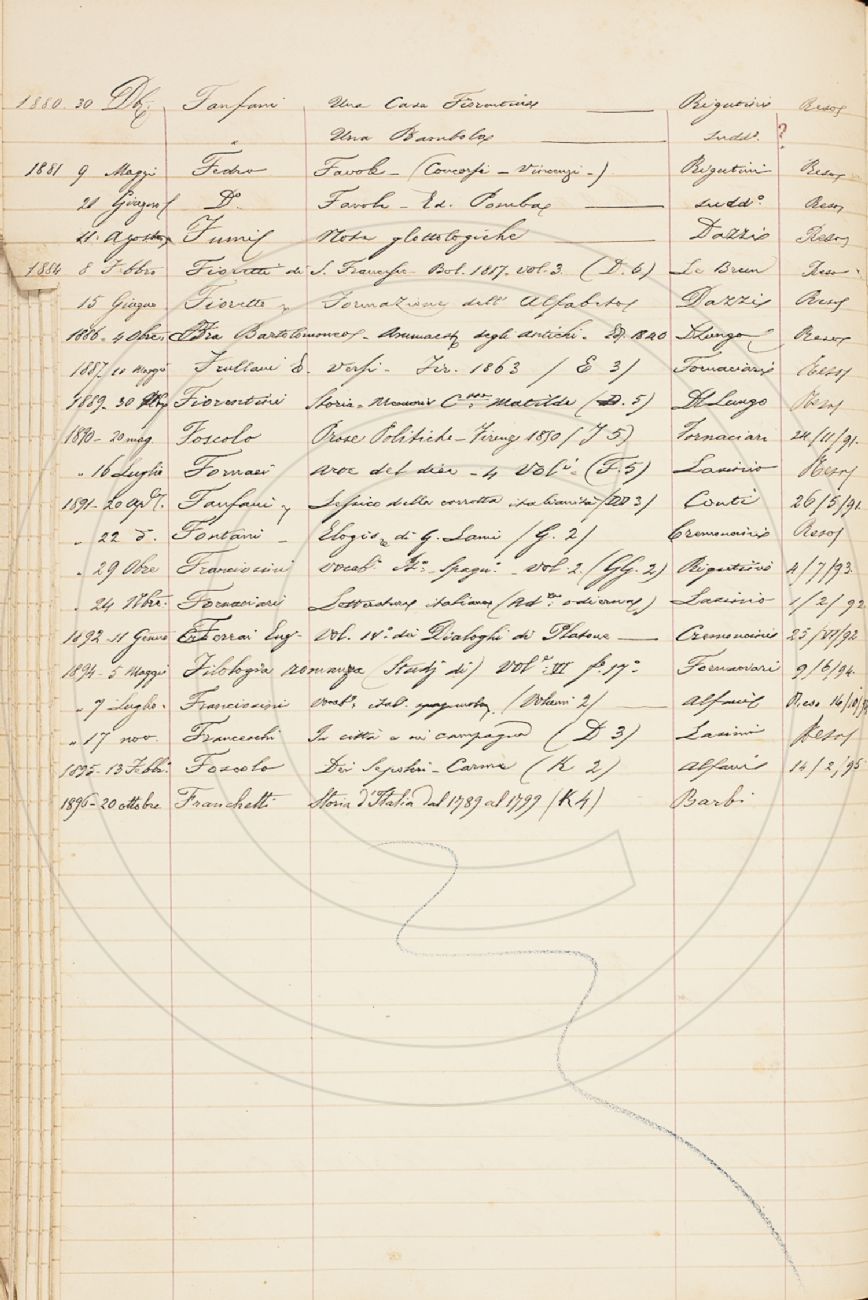 1880 30 Dbr. Fanfani Una Casa Fiorentina Rigutini Reso
" Una Bambola sudd°. ?
1881 9 Maggi Fedro Favole - (Concorsi - Vincenzi -) Rigutini Reso
21 Giugno D°. Favole - Ed. Pomba sudd°. Reso
11. Agosto Fumi Note glottologiche Dazzi Reso
1884 8 Febbro Fioretti di S. Francesco Bol. 1817. vol. 3. (D. 6) Reso
15 Giugno Formazione dell' Alfabeto Dazzi Reso
1886. 4 Obre Fra Bartolommeo - Ammaest. degli antichi. 1820 Del Lungo Reso
1887. 10 Maggio Frullani E. Versi. Fir. 1863 / E 3/ Fornaciari Reso
1889. 30 Fiorentini Storia - Memorie Matilde (D. 5) Del Lungo Reso
1890 - 20 mag. Foscolo Prose Politiche - Firenze 1850 / J 5) Fornaciari 24/11/91.
" 16 Luglio Fornari del dire - 4 Voli. (F. 5) Lasinio Reso
1891 - 20 Fanfani Lessico della corrotta italianità 3) Conti 26/5/91
" 22 d. Fontani - Elogio di G. Lami / G. 2/ Reso
" 29 Obre Franciosini Vocabo. Ito. Spagno. - vol. 2. (GG. 2) Rigutini 4/7/93.
" 24 Nbre. Fornaciari Letteratura italiana Lasinio 1/2/92
1892 - 11 Genno Ferrai Eug - Vol. IVo. dei Dialoghi di Platone 25/VI/92
1894 - 5 Maggi Filologia romanza (Studj di) Vole. VI fo. 17o. Fornaciari 9/6/94.
" 7 Luglio. Franciosini Vocabo. ital. spagnolo / Volumi 2/ Alfani Reso 14/
" 17 nov. Franceschi In città e in campagna (D 3) Lasinio Reso
1895 - 13 Febb. Foscolo Dei Sepolcri - Carme (K 2) Alfani 14/2/95
1896 - 20 ottobre Franchetti Storia d'Italia dal 1789 al 1799 (K4) Barbi